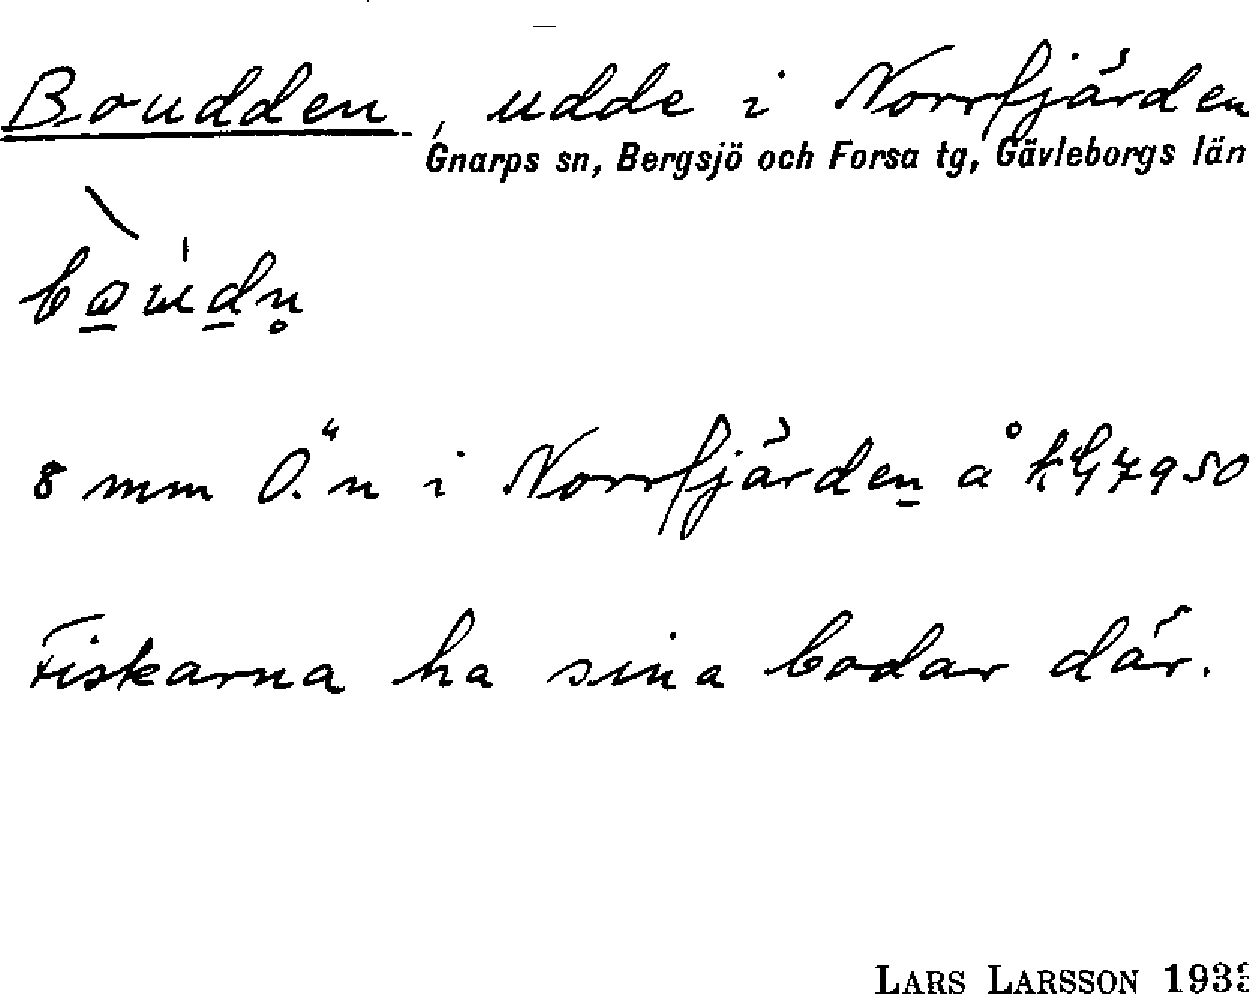 Boudden, udde i Norrfjärden
Gnarps sn, Bergsjö och Forsa tg, Gävleborgs län
8 mm O. "n i Norrfjärden å
Fiskarna ha sina bodar där.
LARS LARSSON